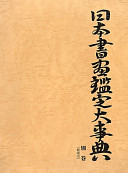 日本書画鑑定大事典
別巻